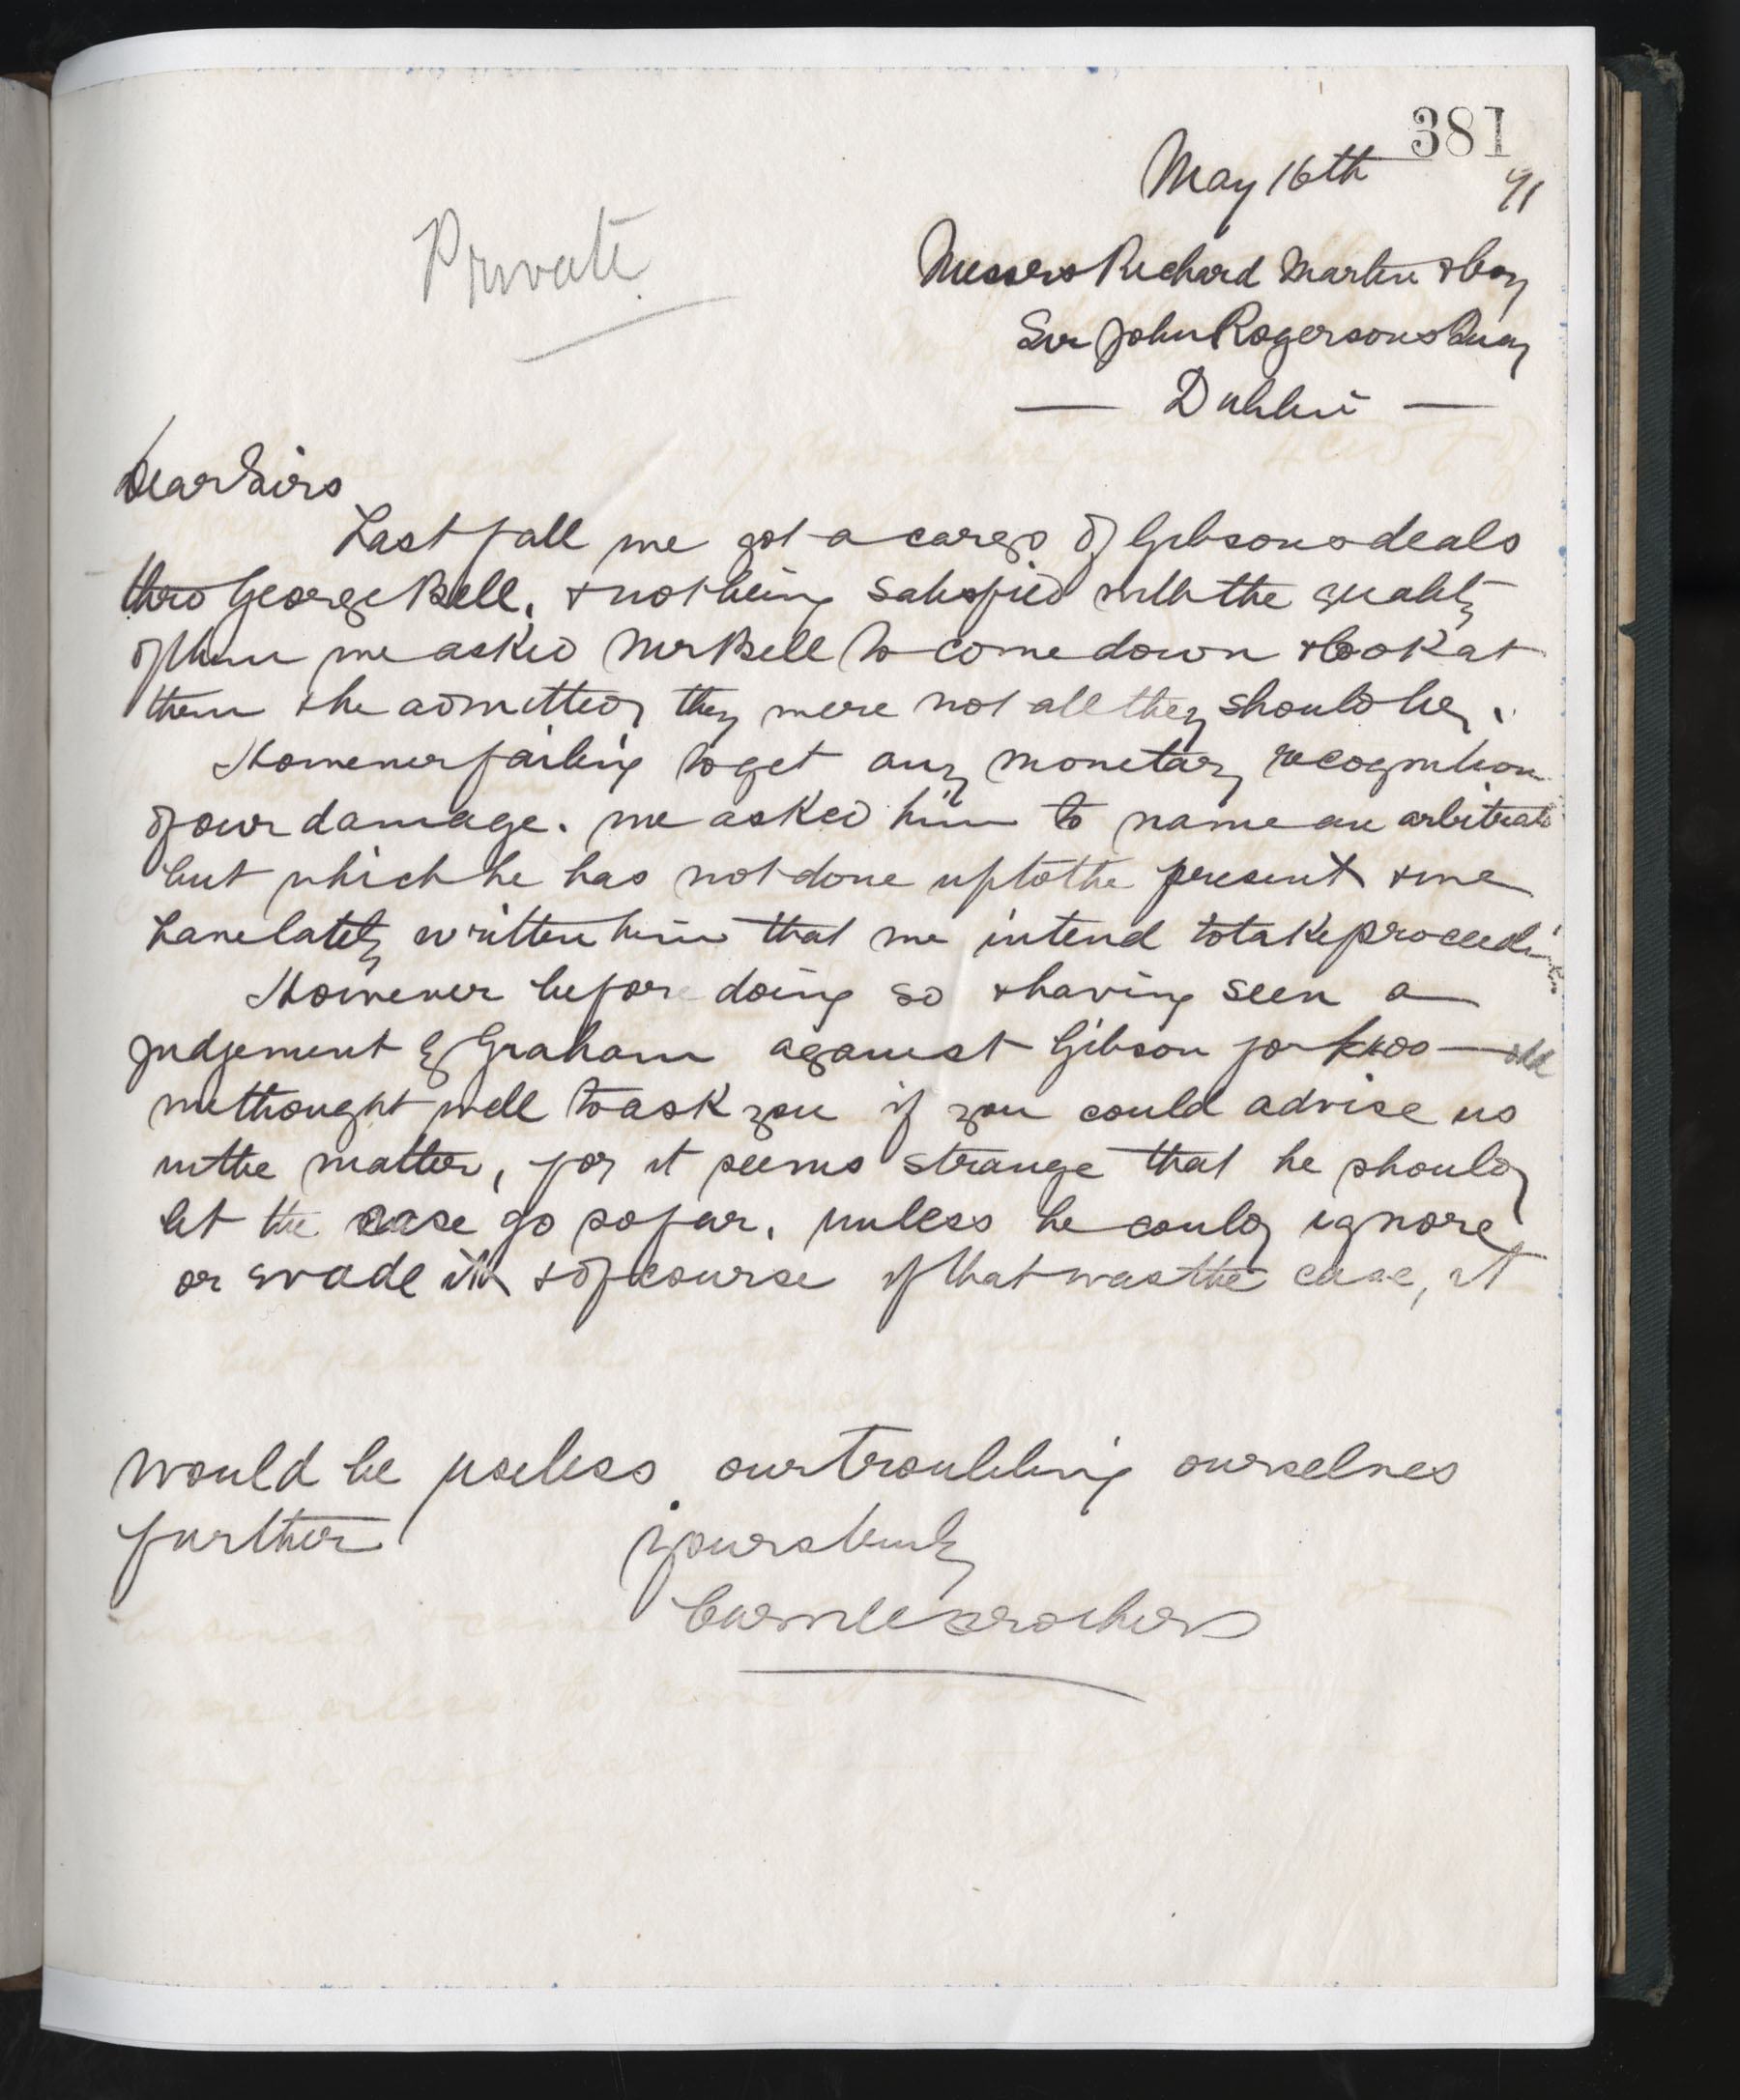 381
May 16th 91
Private
Messrs Richard Martin & Coy
Sir John Rogersons Quay
— Dublin —
Dear Sirs
Last fall we got a cargo of Gibsons deals
thro George Bell, & not being satisfied with the quality
of them we asked Mr Bell to come down & look at
them & he admitted they were not all they should be,
However failing to get any monetary recognition
of our damage. we asked him to name an arbitrat
but which he has not done up to the present & we
have lately written him that we intend to take proceedi
However before doing so & having seen a
judgement by Graham against Gibson for
we thought well to ask you if you could advise us
in the matter, for it seems strange that he should
let the case go so far, unless he could ignore
or evade it & of course if that was the case, it
would be useless our troubling ourselves
further
Yours truly
Brothers